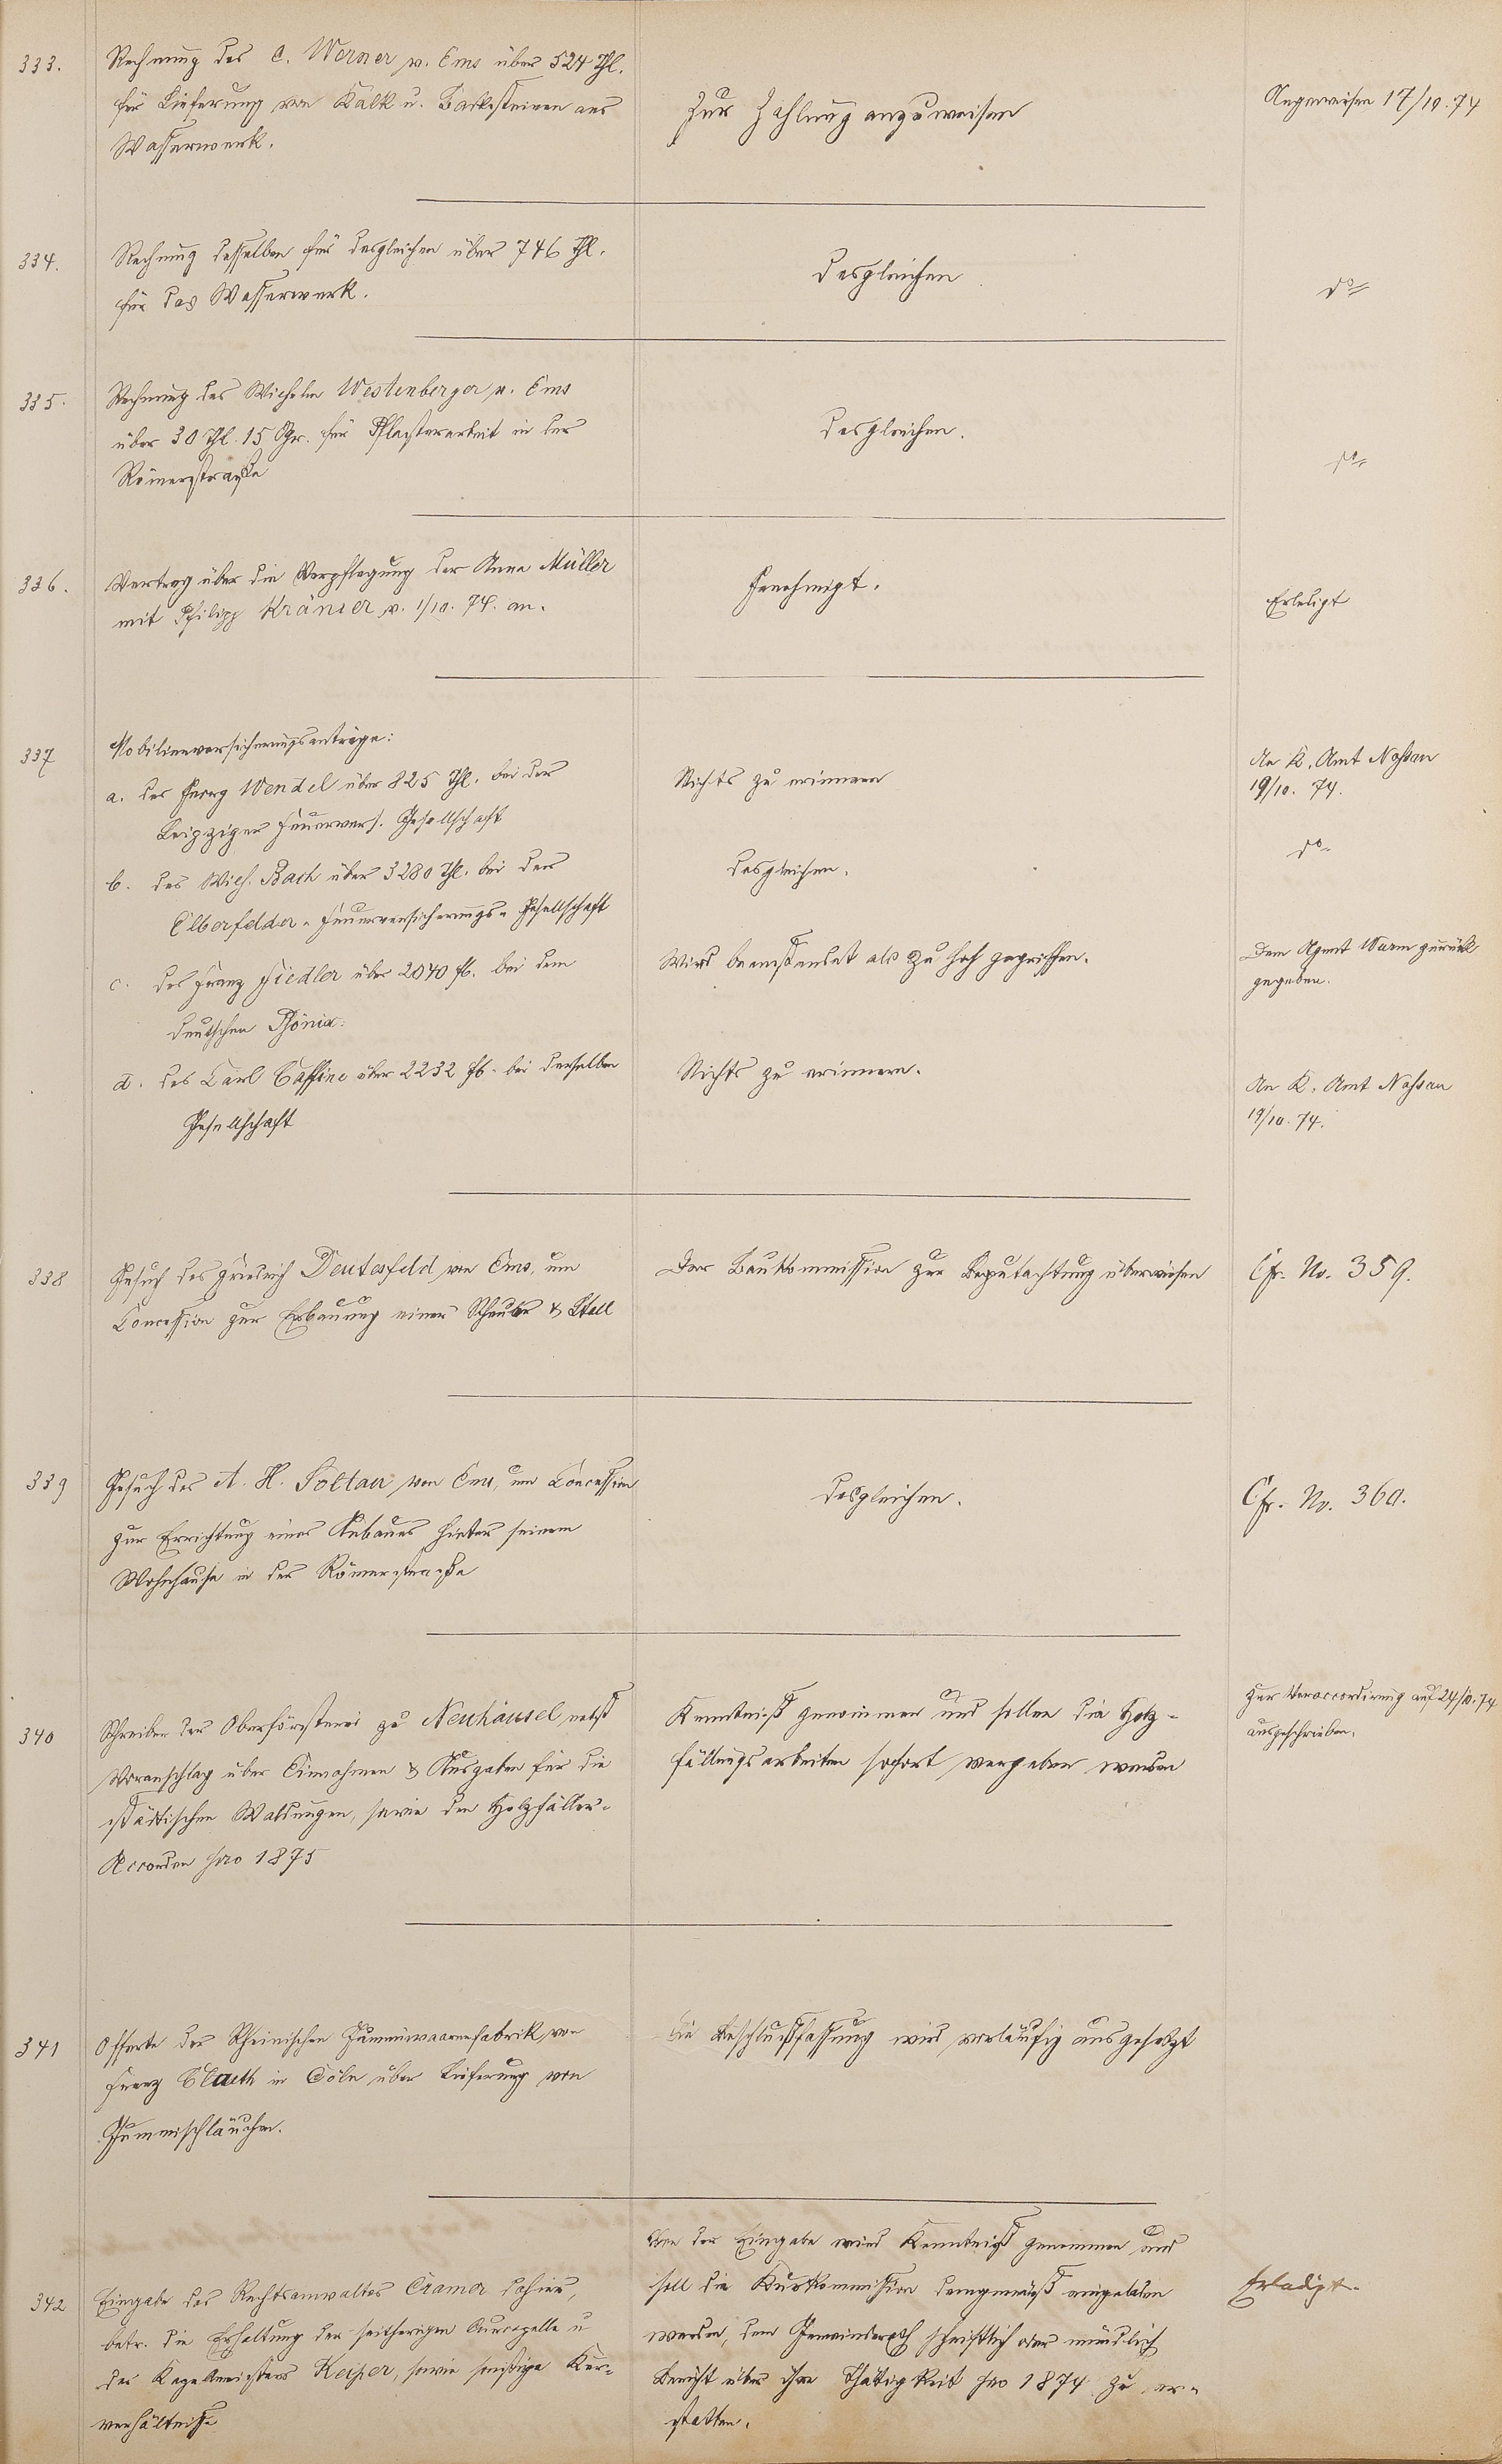 333.
Rechnung des C. Werner v. Ems über 524 Thl.
für Lieferung von Kalk u. Backsteinen ans
Wasserwerk.
Zur Zahlung anzuweisen
Angewiesen 17/10.74
334.
Rechnung desselben für desgleichen über 746 Thl.
für das Wasserwerk.
desgleichen
do
335.
Rechnung des Wilhelm Westenberger v. Ems
über 30 Thl. 15 Gr. für Pflasterarbeit in der
Römerstraße
desgleichen.
do
336.
Vertrag über die Verpflegung der Anna Müller
mit Philipp v. 1/10. 74. an.
Genehmigt.
Erledigt
337
Mobilienversicherungsanträge:
a. des Georg Wendel über 825 Thl. bei der
Leipziger Feuervers. Gesellschaft
Nichts zu erinnern
An K. Amt Nassau
19/10. 74.
b. des Wilh. Bach über 3280 Thl. bei der
Elberfelder-Feuerversicherungs-Gesellschaft
desgleichen.
do
c. des Franz Fiedler über 2040 fl. bei dem
deutschen Phönix.
Wird beanstandet als zu hoch gegriffen.
Dem Agent Wurm zurück
gegeben.
d. des Carl Caffine über 2232 fl. bei derselben
Gesellschaft
Nichts zu erinnern.
An K. Amt Nassau
19/10. 74.
338
Gesuch des Friedrich Deutesfeld von Ems, um
Concession zur Erbauung einer Scheuer & Stall
Der Baukommission zur Begutachtung überwiesen
Cfr. No. 359.
339
Gesuch des A. H. Soltau von Ems, um Concession
zur Errichtung eines Anbaues hinter seinem
Wohnhause in der Römerstraße
desgleichen.
Cfr. No. 360.
340
Schreiben der Oberförsterei zu Neuhäusel nebst
Voranschlag über Einnahmen & Ausgaben für die
städtischen Waldungen, sowie den Holzfäller-
Accorden pro 1875
Kenntniß genommen und sollen die Holz-
fällungsarbeiten sofort vergeben werden
Zur Veraccordirung auf 24/10.74
ausgeschrieben.
341
Offerte der Rheinischen Gummiwaarenfabrik von
Franz Clouth in Cöln über Lieferung von
Gummischläuchen.
Die Beschlußfassung wird vorläufig ausgesetzt
342
Eingabe des Rechtsanwaltes Cramer dahier,
betr. die Erhaltung der seitherigen Curcapelle u
des Kapellmeisters Keiper, sowie sonstige Kur-
verhältnisse
Von der Eingabe wird Kenntniß genommen und
soll die Kurkommission demgemäß eingeladen
werden, dem Gemeinderath schriftlich oder mündlich
Bericht über ihre Thätigkeit pro 1874 zu er-
statten.
Erledigt.